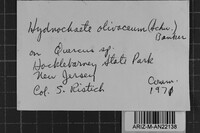 Hydnochaete olivaceum (Schw.)
Banker
on Quercus sp.
Hacklebarney State Park
New Jersey
Col. S. Ristich
1971
ARIZ-M-AN22138